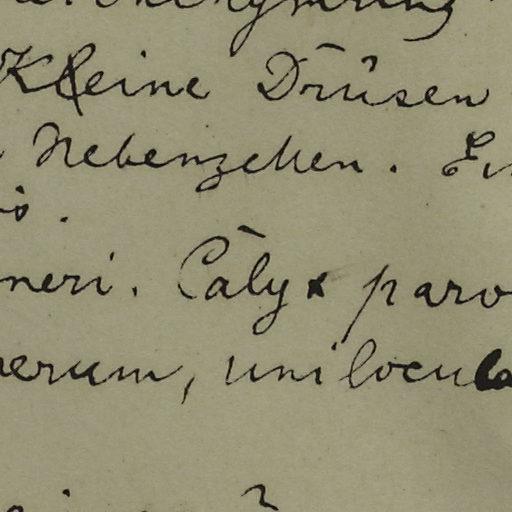 Kleine Drüsen
Nebenzellen. Ein
is.
neri. Calyx parv
erum, unilocula